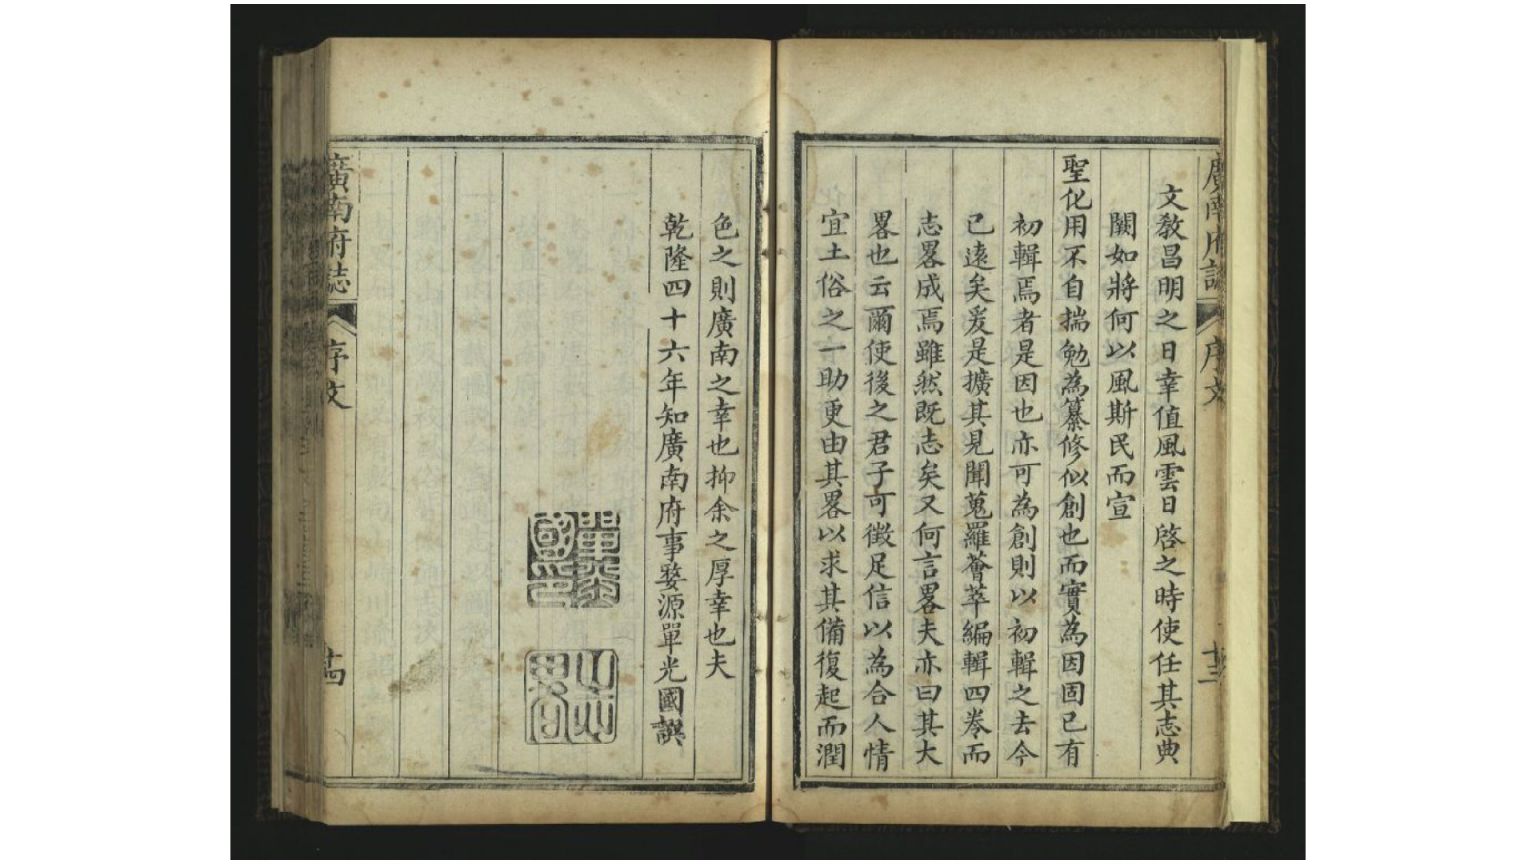 廣南府誌 序文 十三
文教昌明之日幸值風雲日啓之時使任其志典
闕如將何以風斯民而宣
聖化用不自揣勉為纂修似創也而實為因固已有
初輯焉者是因也亦可為創則以初輯之去今
已遠矣爰是擴其見聞蒐羅薈萃編輯四券而
志畧成焉雖然既志矣又何言畧夫亦曰其大
畧也云爾使後之君子可徵足信以為合人情
宜土俗之一助更由其畧以求其備復起而潤
色之則廣南之幸也抑余之厚幸也夫
乾隆四十六年知廣南府事婺源單光國譔
單光國印
廣南府誌 序文 十四